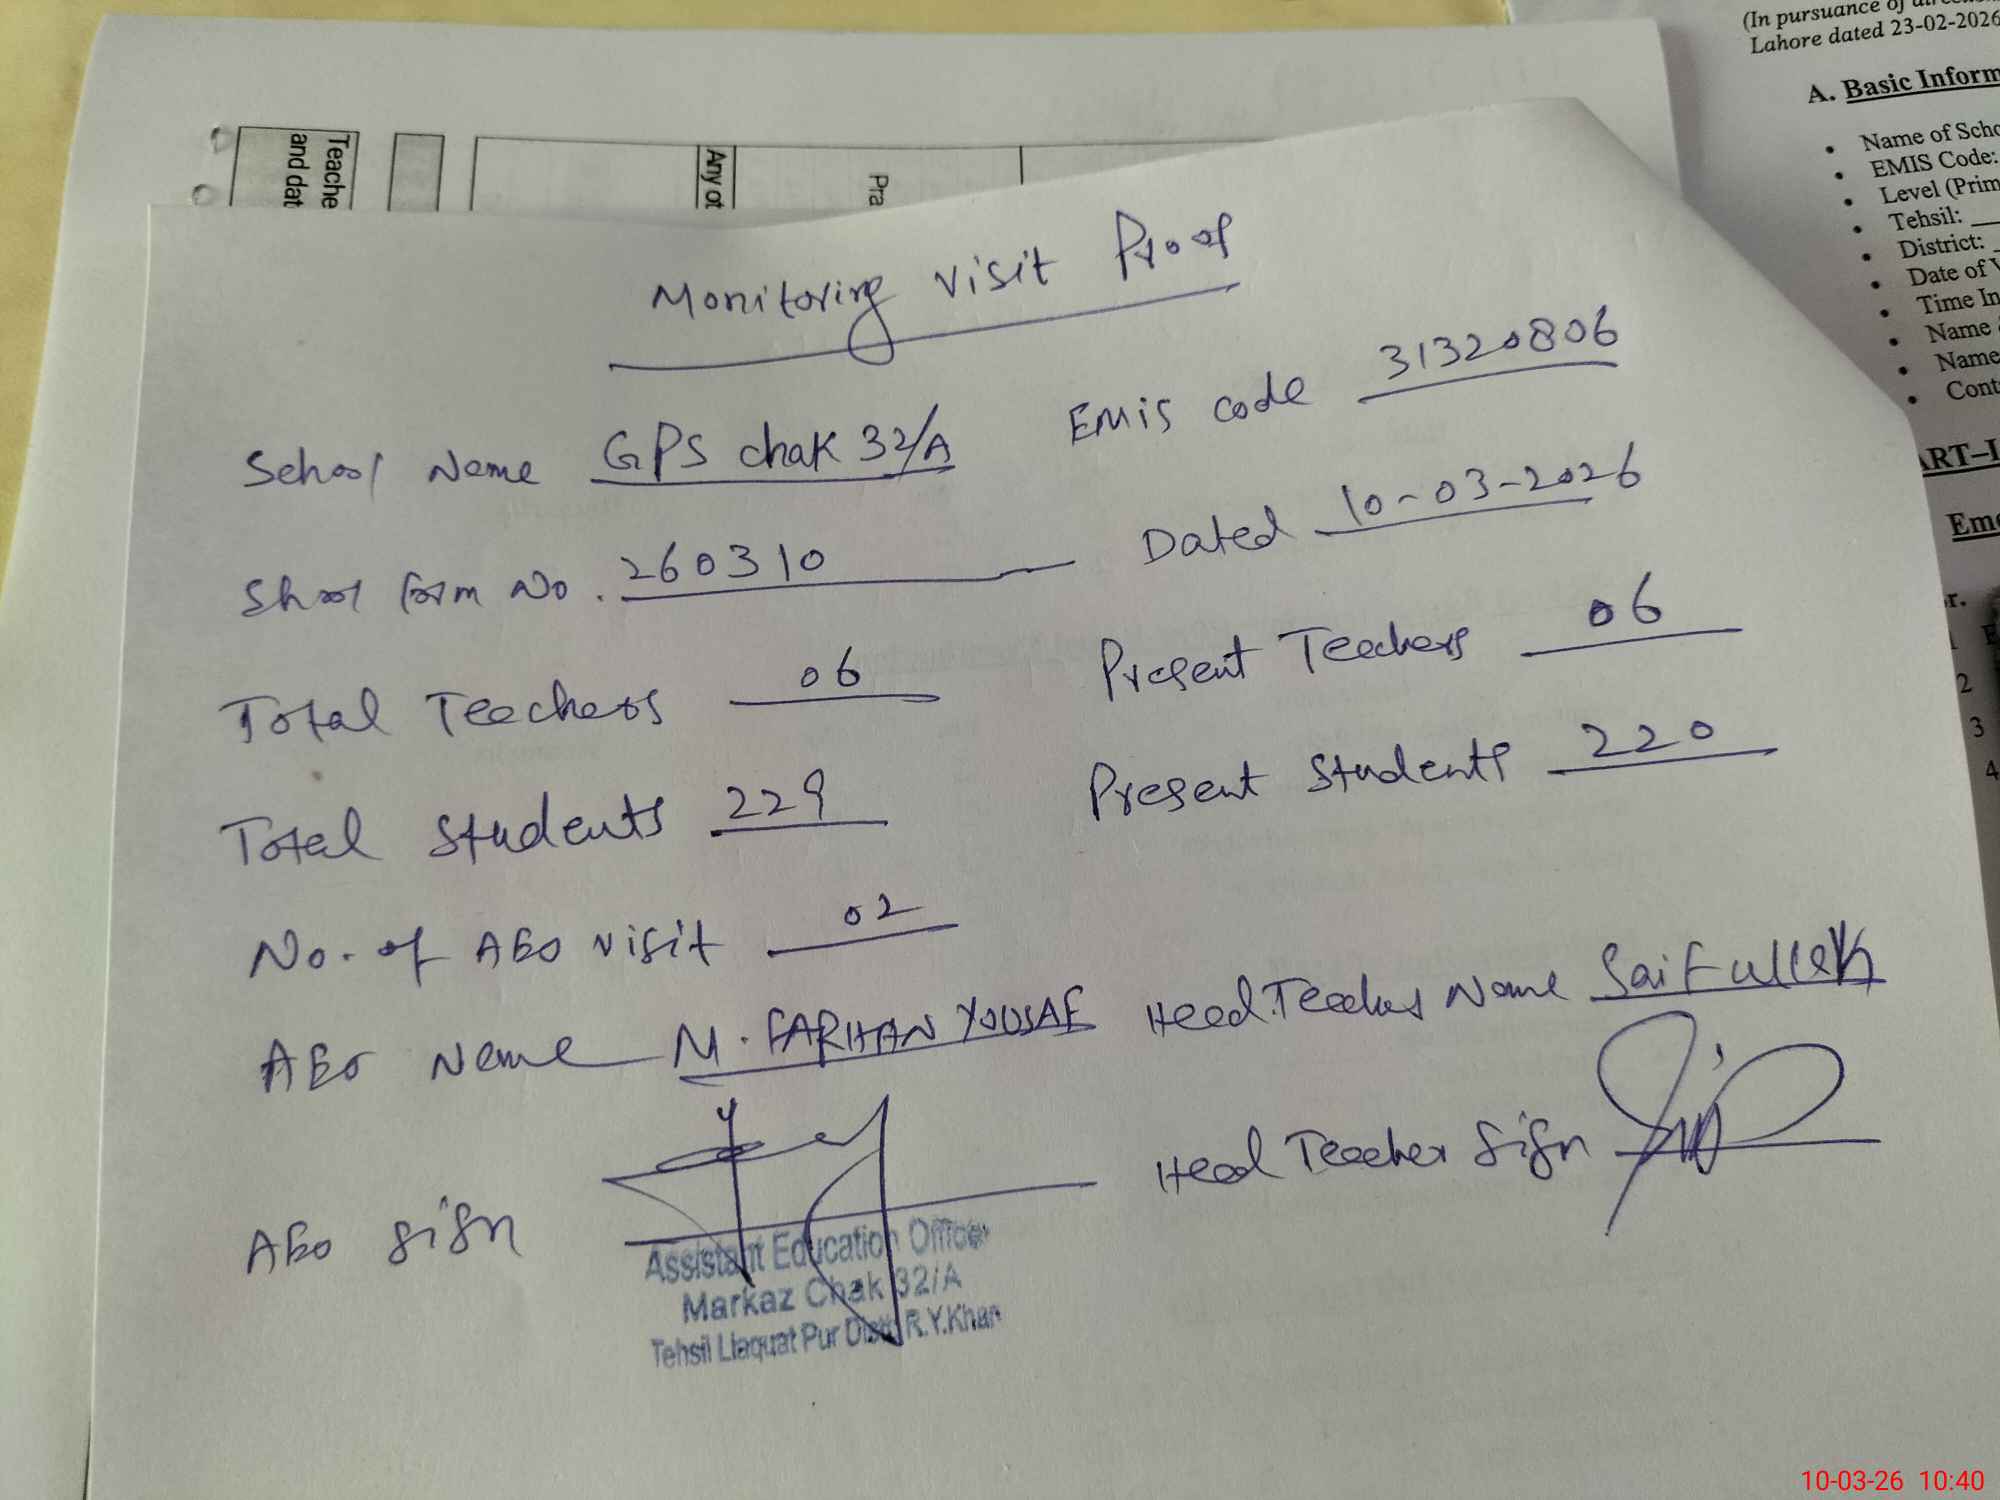 (In pursuance of
Lahore dated 23-02-2026
A. Basic Inform
• Name of Scho
• EMIS Code:
• Level (Prim
• Tehsil: __
• District: _
• Date of V
• Time In
• Name
• Name
• Cont
ART–I
Eme
r.
1 E
2
3
4
Teache
and dat
Any ot
Pra
Monitoring visit Proof
School Name GPS chak 32/A EMIS code 31320806
Shool form No. 260310 Dated 10-03-2026
Total Teechers 06 Present Teechers 06
Total Students 229 Present Students 220
No. of AEO visit 02
AEO Name M. FARHAN YOUSAF Head.Teacher Name Saifullah
AEO sign Head Teacher Sign
Assistant Education Officer
Markaz Chak 32/A
Tehsil Liaquat Pur Distt. R.Y.Khan
10-03-26 10:40